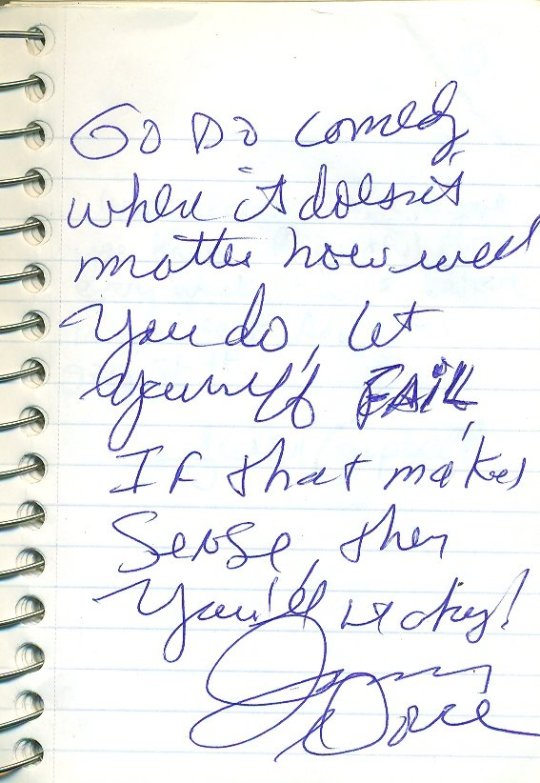 Go Do comedy
where it doesn't
matter how well
You do, let
yourself FAIL,
If that makes
Sense, then
You'll be okay!
Jimmy
Dore